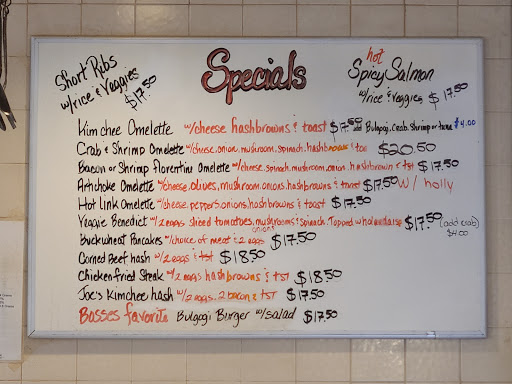 Specials
Short Ribs
w/rice & Veggies
$17.50
hot
Spicy Salmon
w/rice & veggies $17.50
Kimchee Omelette w/cheese hashbrowns & toast $17.50 add Bulgogi. Crab. Shrimp or tuna $4.00
Crab & Shrimp Omelette w/cheese.onion.mushroom.spinach.hashbrowns & toa $20.50
Bacon or Shrimp florentine Omelette w/cheese.spinach.mushroom.onion.hashbrown & tst $17.50
Artichoke Omelette w/cheese.olives.mushroom.onions.hashbrowns & toast $17.50 w/ holly
Hot Link Omelette w/cheese.peppers.onions.hashbrowns & toast $17.50
Veggie Benedict w/2 eggs sliced tomatoes, mushrooms & spinach. Topped w/hollandaise $17.50 (add crab)
onions
$4.00
Buckwheat Pancakes w/choice of meat & 2 eggs $17.50
Corned Beef hash w/2 eggs & tst $18.50
Chicken fried Steak w/2 eggs hashbrowns & tst $18.50
Joe's Kimchee hash w/2 eggs. 2 bacon & tst $17.50
Bosses favorite Bulgogi Burger w/salad $17.50